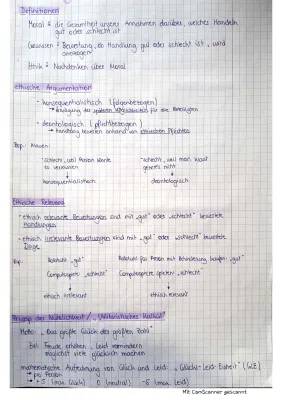 Definitionen
Moral ≙ die Gesamtheit unserer Annahmen darüber, welches Handeln
gut oder schlecht ist
Gewissen ≙ Bewertung, ob Handlung gut oder schlecht ist, wird
Ethik ≙ Nachdenken über Moral
ethische Argumentation
- konsequentialistisch (folgenbezogen)
↳ Abwägung der für alle Beteiligten
- deontologisch (pflichtbezogen)
↳ Handlung bewerten anhand von Pflichten
Bsp.: Mauer
"schlecht, weil Person könnte "schlecht, weil man
↓ ↓
konsequentialistisch deontologisch
Ethische Relevanz
- ethisch relevante Bewertungen sind mit „gut" oder „schlecht" bewertete
Handlungen
- ethisch irrelevante Bewertungen sind mit „gut" oder „schlecht" bewertete
Dinge
Bsp. Rollstuhl „gut" Rollstuhl für Person mit Behinderung kaufen „gut"
Computerspiele „schlecht" Computerspiele spielen „schlecht"
↓ ↓
ethisch irrelevant ethisch relevant
Prinzip der Nützlichkeit /
Motto: „Das größte Glück der größten Zahl"
Bsp. Freude erhöhen, Leid vermindern
möglichst viele glücklich machen
mathematische Aufrechnung von Glück und Leid: „Glücks-Leid-Einheit" (GLE)
pro Person
↳ +5 (max. Glück) 0 (neutral) -5 (max. Leid)
Mit CamScanner gescannt